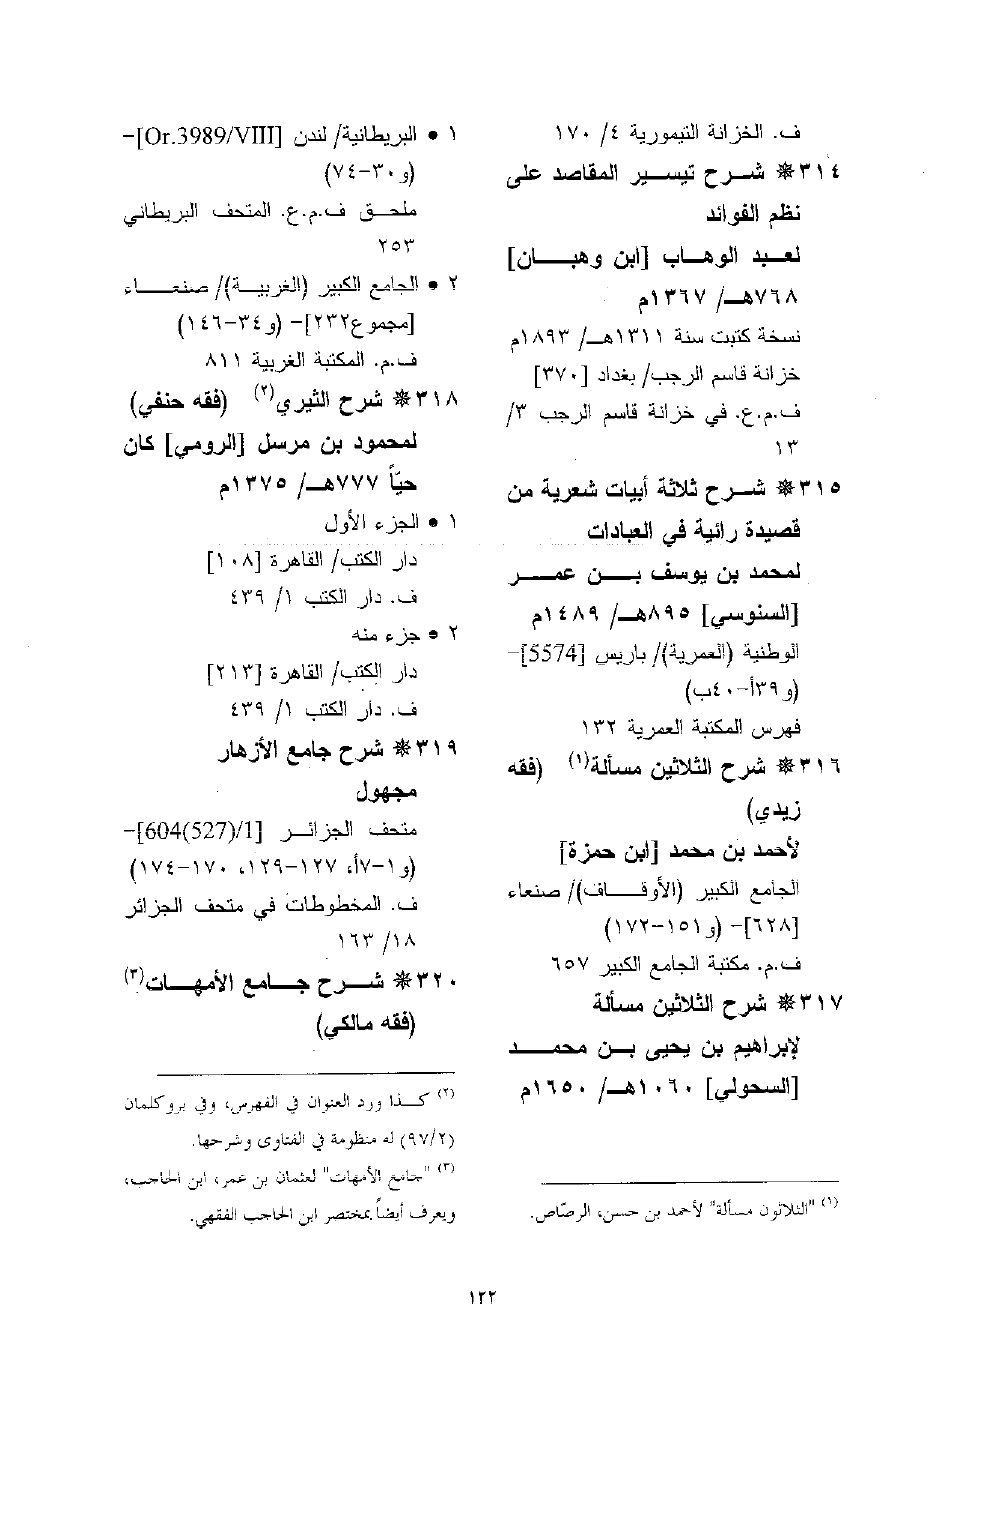 ف. الخزانة التيمورية ٤/ ١٧٠
٣١٤* شرح تيسير المقاصد على
نظم الفوائد
لعبد الوهاب [ابن وهبان]
٧٦٨هـ/ ١٣٦٧م
نسخة كتبت سنة ١٣١١هـ/ ١٨٩٣م
خزانة قاسم الرجب/ بغداد [٣٧٠]
ف.م.ع. في خزانة قاسم الرجب ٣/
١٣
٣١٥* شرح ثلاثة أبيات شعرية من
قصيدة رائية في العبادات
لمحمد بن يوسف بن عمر
[السنوسي] ٨٩٥هـ/ ١٤٨٩م
الوطنية (العمرية)/ باريس [5574]-
(و٣٩أ-٤٠ب)
فهرس المكتبة العمرية ١٣٢
٣١٦* شرح الثلاثين مسألة(١) (فقه
زيدي)
لأحمد بن محمد [ابن حمزة]
الجامع الكبير (الأوقاف)/ صنعاء
[٦٢٨]- (و١٥١-١٧٢)
ف.م. مكتبة الجامع الكبير ٦٥٧
٣١٧* شرح الثلاثين مسألة
لإبراهيم بن يحيى بن محمد
[السحولي] ١٠٦٠هـ/ ١٦٥٠م
(١) "الثلاثون مسألة" لأحمد بن حسن، الرصّاص.
١ • البريطانية/ لندن [Or.3989/VIII]-
(و٣٠-٧٤)
ملحق ف.م.ع. المتحف البريطاني
٢٥٣
٢ • الجامع الكبير (الغربية)/ صنعاء
[مجموع٢٣٢]- (و٣٤-١٤٦)
ف.م. المكتبة الغربية ٨١١
٣١٨* شرح الثيري(٢) (فقه حنفي)
لمحمود بن مرسل [الرومي] كان
حيّاً ٧٧٧هـ/ ١٣٧٥م
١ • الجزء الأول
دار الكتب/ القاهرة [١٠٨]
ف. دار الكتب ١/ ٤٣٩
٢ • جزء منه
دار الكتب/ القاهرة [٢١٣]
ف. دار الكتب ١/ ٤٣٩
٣١٩* شرح جامع الأزهار
مجهول
متحف الجزائر [604(527)/1]-
(و١-٧أ، ١٢٧-١٢٩، ١٧٠-١٧٤)
ف. المخطوطات في متحف الجزائر
١٨/ ١٦٣
٣٢٠* شرح جامع الأمهات(٣)
(فقه مالكي)
(٢) كذا ورد العنوان في الفهرس، وفي بروكلمان
(٩٧/٢) له منظومة في الفتاوى وشرحها.
(٣) "جامع الأمهات" لعثمان بن عمر، ابن الحاجب،
ويعرف أيضاً بمختصر ابن الحاجب الفقهي.
١٢٢